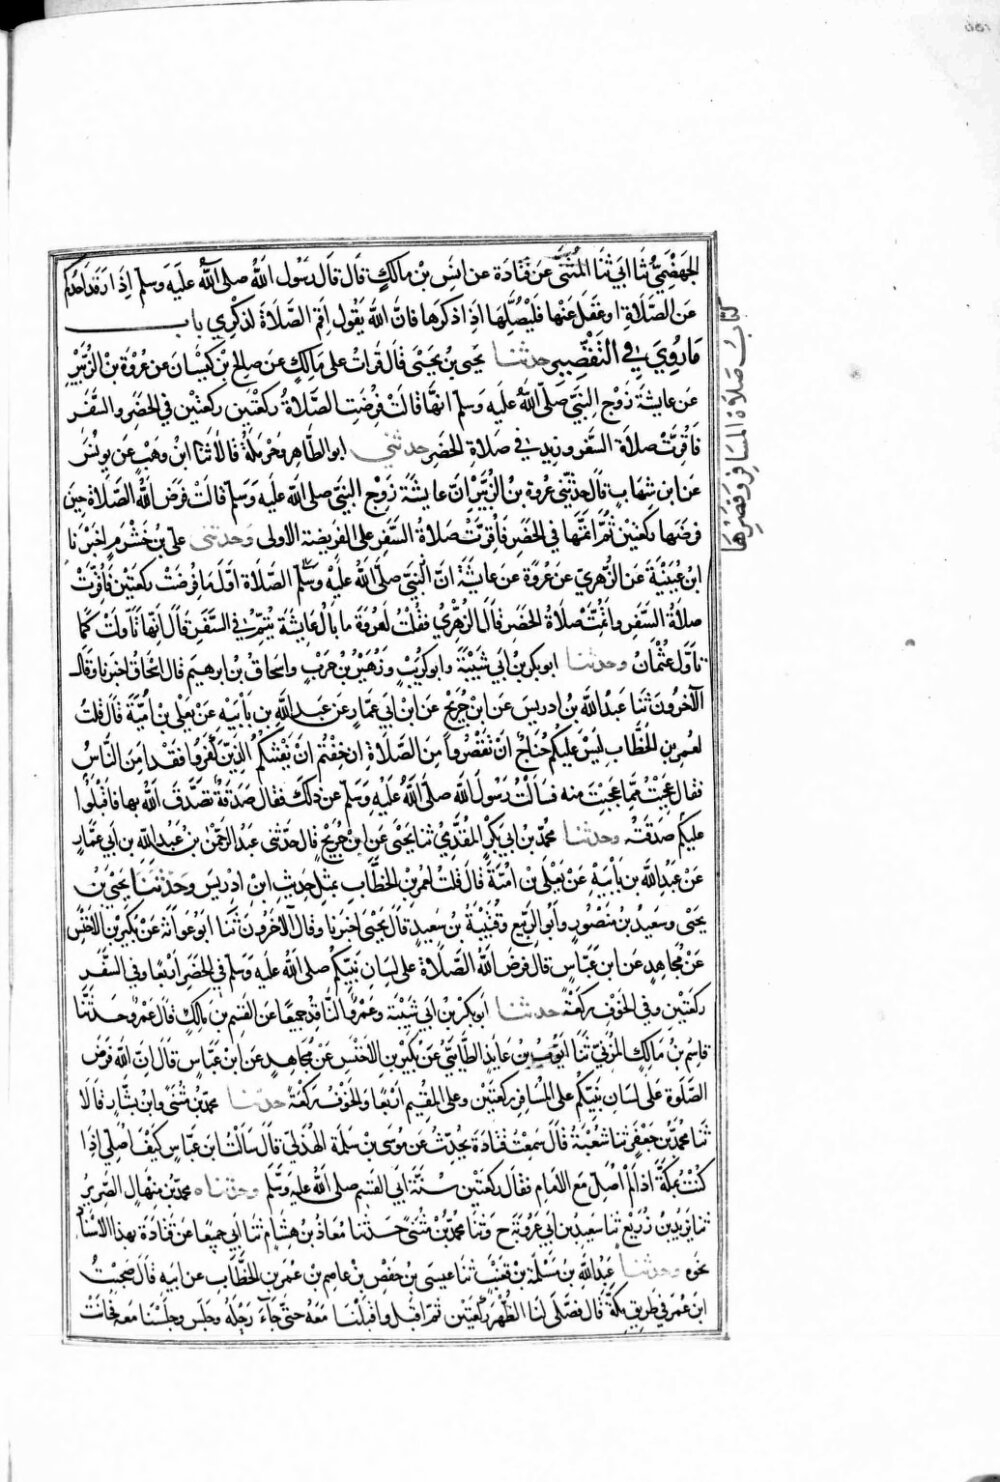 الجهضمي ثنا ابي ثنا المثنى عن قتادة عن انس بن مالك قال قال رسول الله صلى الله عليه وسلم اذا رقد احدكم
عن الصلاة او غفل عنها فليصلها اذا ذكرها فان الله يقول اقم الصلاة لذكري باب
ما روي في التقصير حدثنا يحيى بن يحيى قال قرات على مالك عن صالح بن كيسان عن عروة بن الزبير
عن عايشة زوج النبي صلى الله عليه وسلم انها قالت فرضت الصلاة ركعتين ركعتين في الحضر والسفر
فاقرت صلاة السفر وزيد في صلاة الحضر حدثني ابو الطاهر وحرملة قالا ثنا ابن وهب عن يونس
عن ابن شهاب قال حدثني عروة بن الزبير ان عايشة زوج النبي صلى الله عليه وسلم قالت فرض الله الصلاة حين
فرضها ركعتين ثم اتمها في الحضر فاقرت صلاة السفر على الفريضة الاولى وحدثني علي بن خشرم اخبرنا
ابن عيينة عن الزهري عن عروة عن عايشة ان النبي صلى الله عليه وسلم الصلاة اول ما فرضت ركعتين فاقرت
صلاة السفر واتمت صلاة الحضر قال الزهري فقلت لعروة ما بال عايشة يتم في السفر قال انها تاولت كما
تاول عثمان وحدثنا ابو بكر بن ابي شيبة وابو كريب وزهير بن حرب واسحاق بن ابرهيم قال اسحاق اخبرنا وقال
الآخرون ثنا عبد الله بن ادريس عن ابن جريج عن ابن ابي عمار عن عبد الله بن بابيه عن يعلى بن امية قال قلت
لعمر بن الخطاب ليس عليكم جناح ان تقصروا من الصلاة ان خفتم ان يفتنكم الذين كفروا فقد امن الناس
فقال عجبت مما عجبت منه فسالت رسول الله صلى الله عليه وسلم عن ذلك فقال صدقة تصدق الله بها فاقبلوا
عليكم صدقته وحدثنا محمد بن ابي بكر المقدمي ثنا يحيى عن ابن جريج قال حدثني عبد الرحمن بن عبد الله بن ابي عمار
عن عبد الله بن بابيه عن يعلى بن امية قال قلت لعمر بن الخطاب بمثل حديث ابن ادريس وحدثنا يحيى بن
يحيى وسعيد بن منصور وأبو الربيع وقتيبة بن سعيد قال يحيى اخبرنا وقال الآخرون ثنا ابو عوانة عن بكير بن الاخنس
عن مجاهد عن ابن عباس قال فرض الله الصلاة على لسان نبيكم صلى الله عليه وسلم في الحضر اربعا وفي السفر
ركعتين وفي الخوف ركعة حدثنا ابو بكر بن ابي شيبة وعمرو الناقد جميعا عن القسم بن مالك قال عمرو حدثنا
قاسم بن مالك المزني ثنا ايوب بن عايذ الطايي عن بكير بن الاخنس عن مجاهد عن ابن عباس قال ان الله فرض
الصلوة على لسان نبيكم على المسافر ركعتين وعلى المقيم اربعا والخوف ركعة حدثنا محمد بن مثنى وابن بشار قالا
ثنا محمد بن جعفر ثنا شعبة قال سمعت قتادة يحدث عن موسى بن سلمة الهذلي قال سالت ابن عباس كيف اصلي اذا
كنت بمكة اذا لم اصل مع الامام فقال ركعتين سنة ابي القسم صلى الله عليه وسلم وحدثناه محمد بن منهال الضرير
ثنا يزيد بن زريع ثنا سعيد بن ابي عروبة ح وثنا محمد بن مثنى حدثنا معاذ بن هشام ثنا ابي جميعا عن قتادة بهذا الاسناد
نحوه وحدثنا عبد الله بن مسلمة بن قعنب ثنا عيسى بن حفص بن عاصم بن عمر بن الخطاب عن ابيه قال صحبت
ابن عمر في طريق مكة قال فصلى لنا الظهر ركعتين ثم اقبل واقبلنا معه حتى جآء رحله وجلس وجلسنا معه فحانت
كتاب صلاة المسافر وقصرها